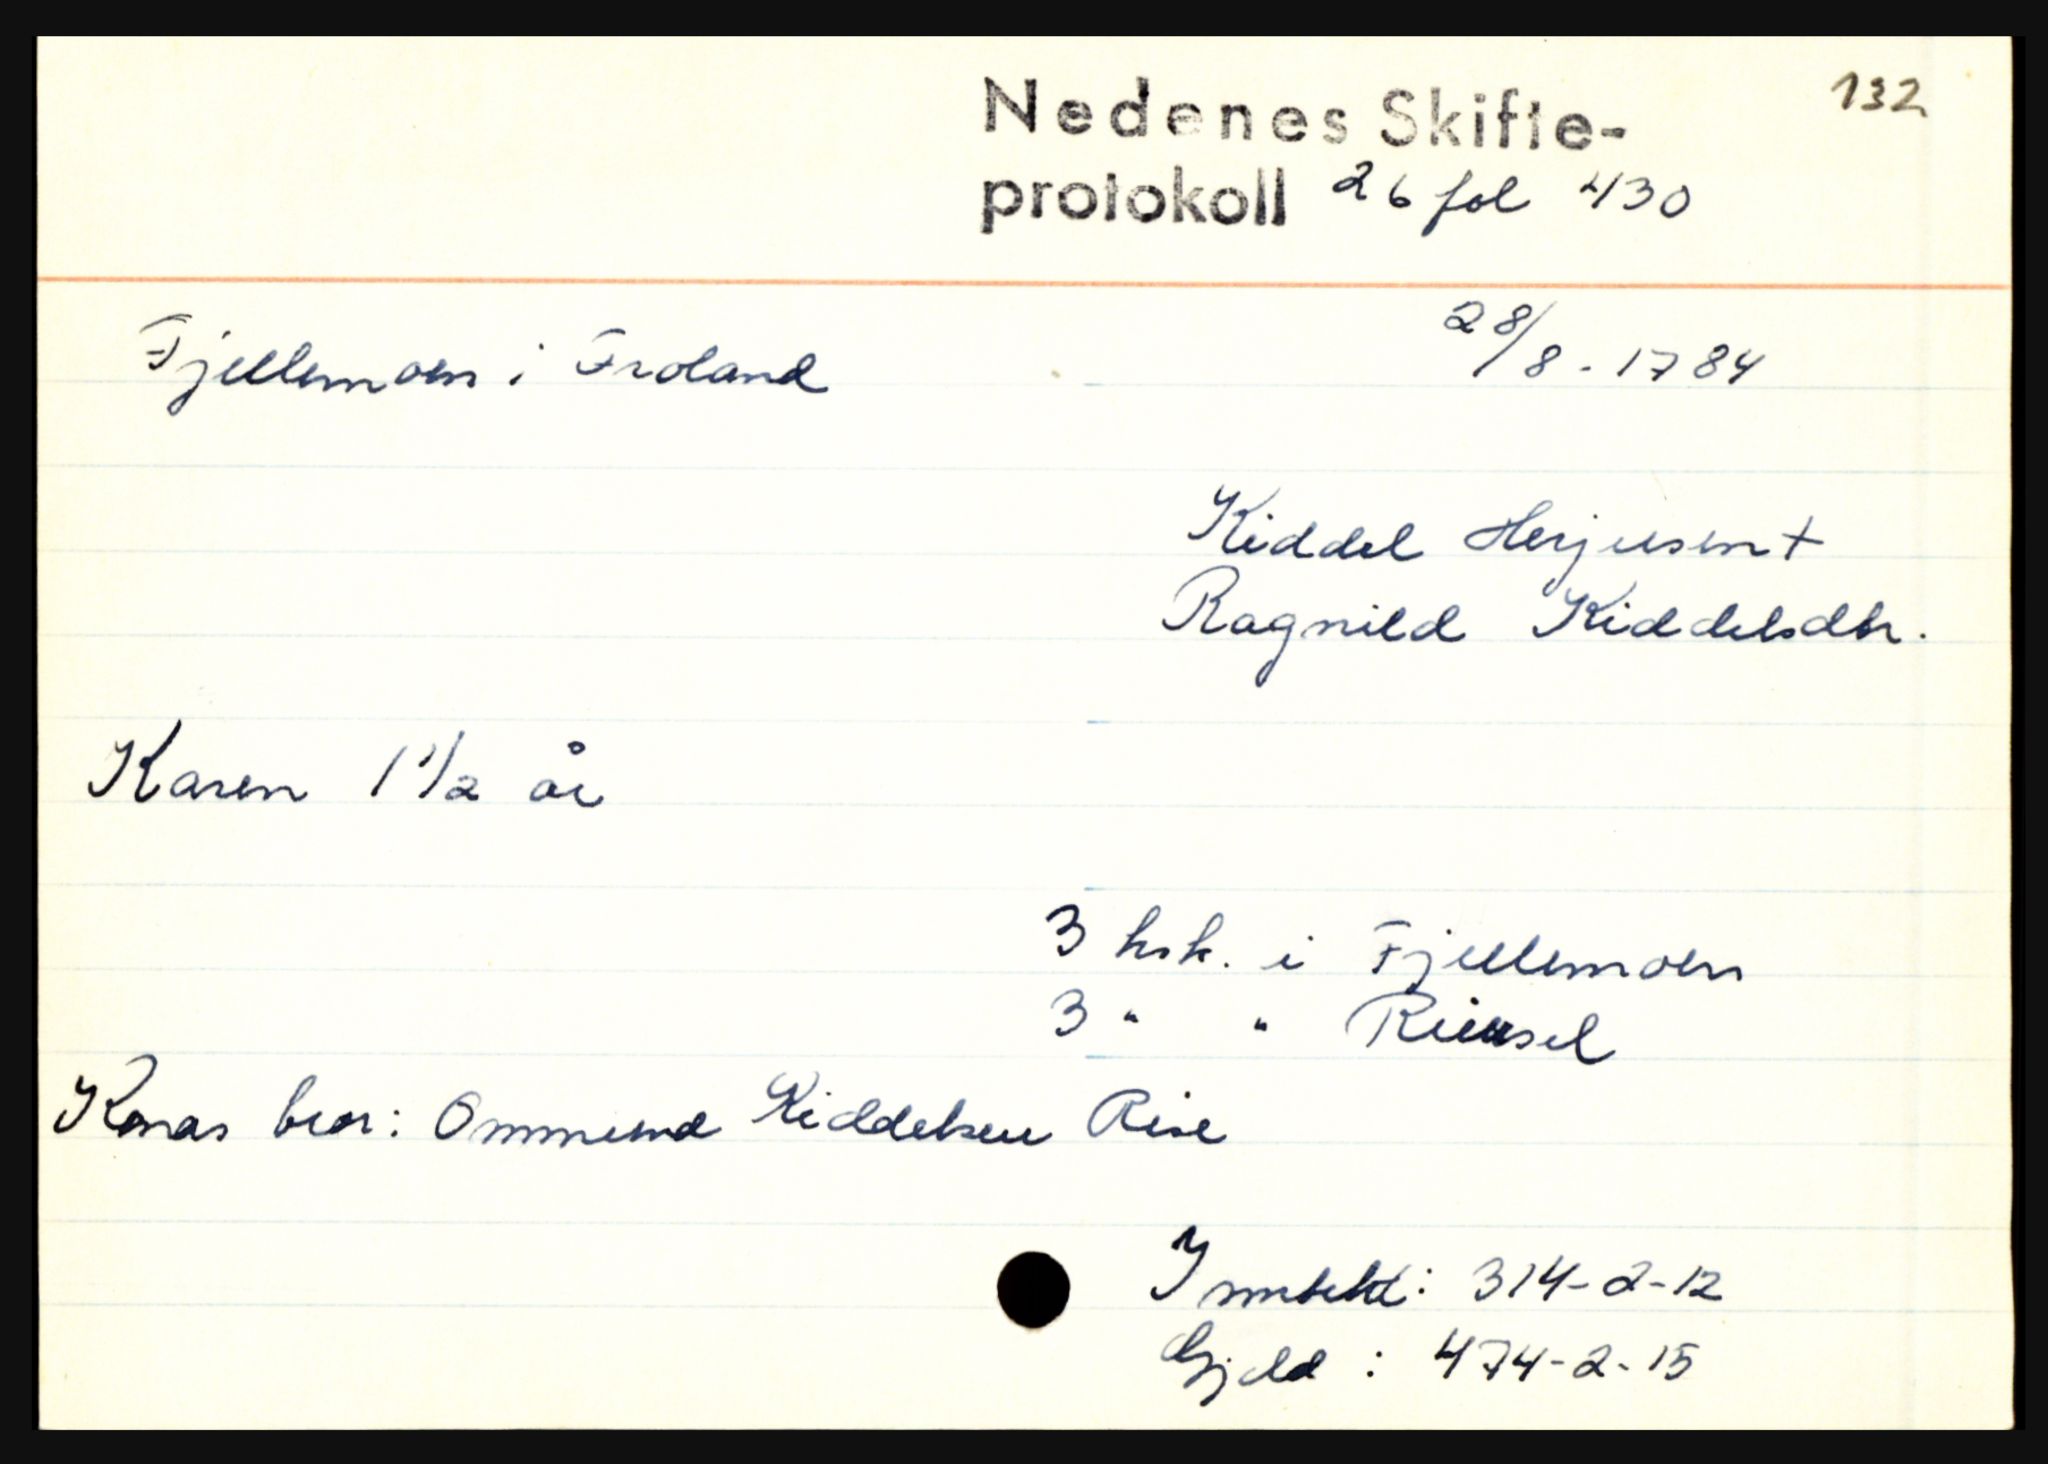 132
Nedenes Skifte-
protokoll 26 fol 430
Fjellemoen i Froland 28/8 - 1784
Kiddel Herjusen +
Ragnild Kiddelsdtr.
Karen 1 1/2 år
3 hsk. i Fjellemoen
3 " " Riiusel
Konas bror: Ommund Kiddelsen Rise
Inntekt: 314-2-12
Gjeld: 474-2-15